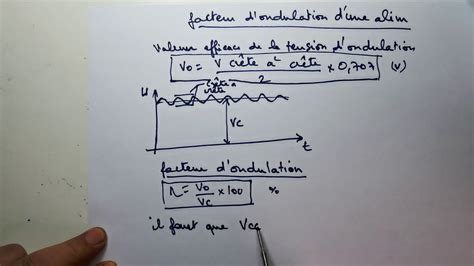 facteur d'ondulation d'une alim
Valeur efficace de la tension d'ondulation
Vo = V crête a² crête / 2 × 0,707 (V)
crête a
crête
U
Vc
t
facteur d'ondulation
r = Vo / Vc × 100 %
il faut que Vcc